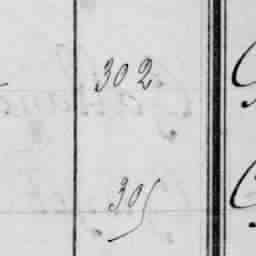 302
305